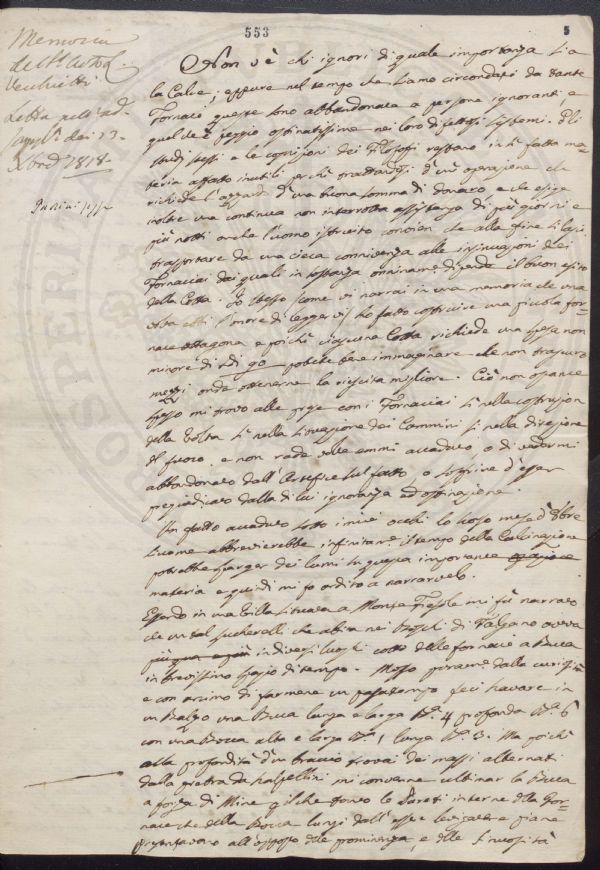 553
5
Memoria
del Sig. Autol.
Vecchietti
Letta nell'ad-
dei 13
Xbre 1818
Non v'è chi ignori di quale importanza sia
la Calce; eppure nel tempo che siamo circondati da tante
Fornaci queste sono abbandonate a persone ignoranti, e
quel che è peggio ostinatissime nei loro difettosi sistemi. Gli
studj stessi e le cognizioni dei Filosofi restano in sì fatta ma-
teria affatto inutili perchè trattandosi d'un'operazione che
richiede l'azzardo d'una buona somma di denaro e che esige
inoltre una continua non interrotta assistenza di più giorni e
più notti anche l'uomo istruito conviene che alla fine si lasci
trasportare da una cieca connivenza alle insinuazioni dei
Fornaciai dai quali in sostanza onninamente dipende il buon esito
della Cotta. Io stesso come vi narrai in una memoria che una
volta ebbi l'onore di leggervi, ho fatto costruire una piccola for-
nace ottagona e poichè ciascuna Cotta richiede una spesa non
minore di 90 potete bene immaginare che non trascuro
mezzi onde ottenerne la riescita migliore. Ciò non ostante
spesso mi trovo alle prese con i Fornaciai sì nella costruzione
della Volta sì nella situazione dei Cammini sì nella direzione
del fuoco e non rade volte emmi accaduto o di vedermi
abbandonato dall'Artefice sul fatto o soffrire d'esser
pregiudicato dalla di lui ignoranza ed ostinazione.
Un fatto accaduto sotto i miei occhi lo scorso mese d'8bre
siccome abbrevierebbe infinitamente il tempo della Calcinazione
potrebbe sparger dei lumi in questa importante
materia e quindi mi fo ardito a narrarvelo.
Essendo in una Villa situata a Monte Fiesole mi fù narrato
che un tal che abita nei Boschi di Falgano aveva
in diversi luoghi cotto delle fornaci a Buca
in brevissimo spazio di tempo. Mosso puramente dalla curiosità
e con animo di farmene un passatempo feci scavare in
un Balzo una Buca lunga e larga B.a 4 profonda B.a 6
con una Bocca alta e larga B.a 1 lunga B.a 3. Ma poichè
alla profondità d'un braccio trovai dei massi alternati
dalla pietra da scalpellini mi convenne ultimar la Buca
a forza di Mine il che tanto le Pareti interne della For-
nace che della Bocca lungi dall'essere levigate e piane
presentavano all'opposto delle prominenze, e delle sinuosità